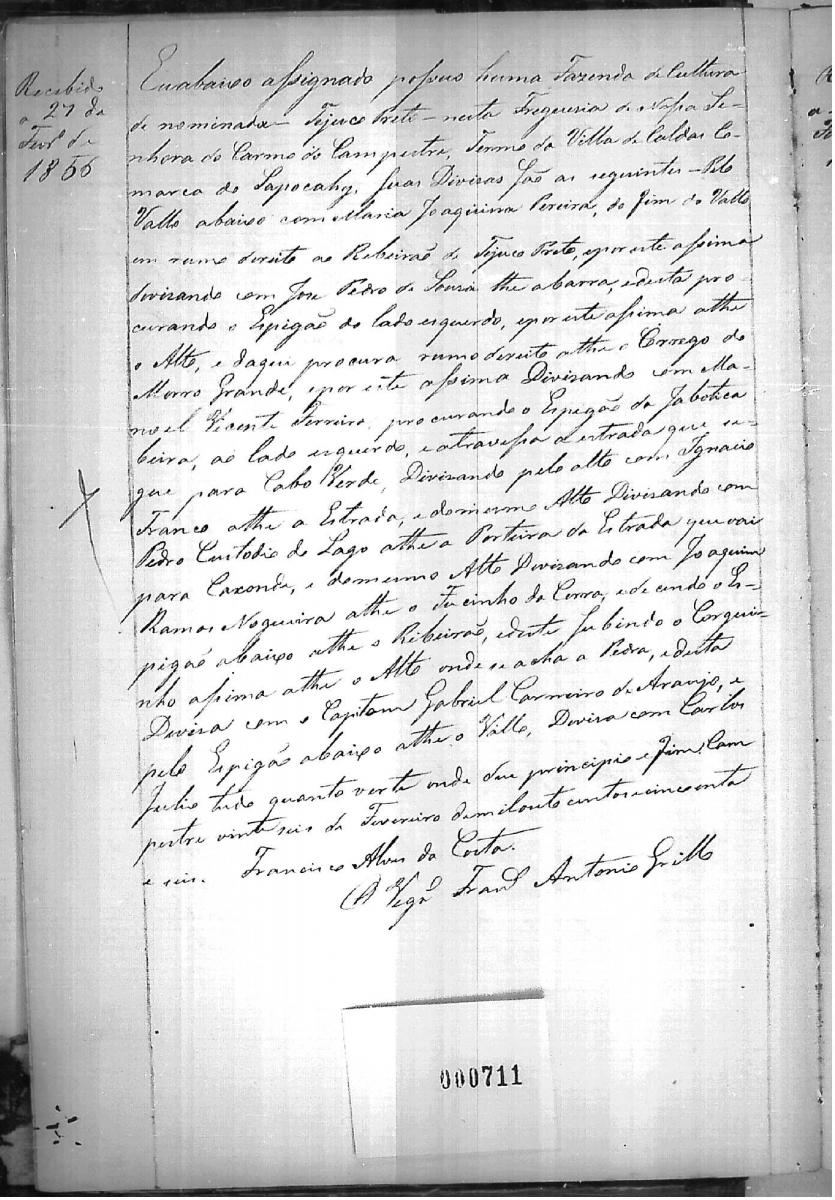 Recebido
a 27 de
Fevrº de
1856
Eu abaixo assignado possuo huma Fazenda de Cultura
de nominada - Tejuco Preto - nesta Freguesia de Nossa Se-
nhora do Carmo do Campestre, Termo da Villa de Caldas Co-
marca do Sapocahy, suas Divizas são as seguintes - Pelo
Vallo abaixo com Maria Joaquina Pereira, do fim do Vallo
em rumo direito ao Ribeirão do Tejuco Preto, e por este assima
divizando com José Pedro de Souza the a barra, e desta pro-
curando o Espigão do lado esquerdo, e por este assima athe
o Alto, e daqui procura rumo direito athe o Corrego do
Morro Grande, e por este assima Divizando com Ma-
noel Vicente Ferreira, procurando o Espigão da Jabotica
beira, ao lado esquerdo, e atravessa a estrada que se-
gue para Cabo Verde, Divizando pelo alto com Ignacio
Franco athe a Estrada, e do mesmo Alto Divizando com
Pedro Custodio do Lago athe a Porteira da Estrada que vai
para Caxonde, e do mesmo Alto Divizando com Joaquim
Ramos Nogueira athe o Fucinho da Cerra, e decendo o Es-
pigão abaixo athe o Ribeirão, e deste subindo o Corgui-
nho assima athe o Alto onde se acha a Pedra, e desta
Diviza com o Capitam Gabriel Carneiro de Araujo, e
pelo Espigão abaixo athe o Vallo, Diviza com Carlos
Julio tudo quanto verte onde deu principio e fim, Cam
pestre vinte seis de Fevereiro de mil oito centos e cincoenta
e seis. Francisco Alves da Costa.
Vigrº Franº Antonio Grillo
000711